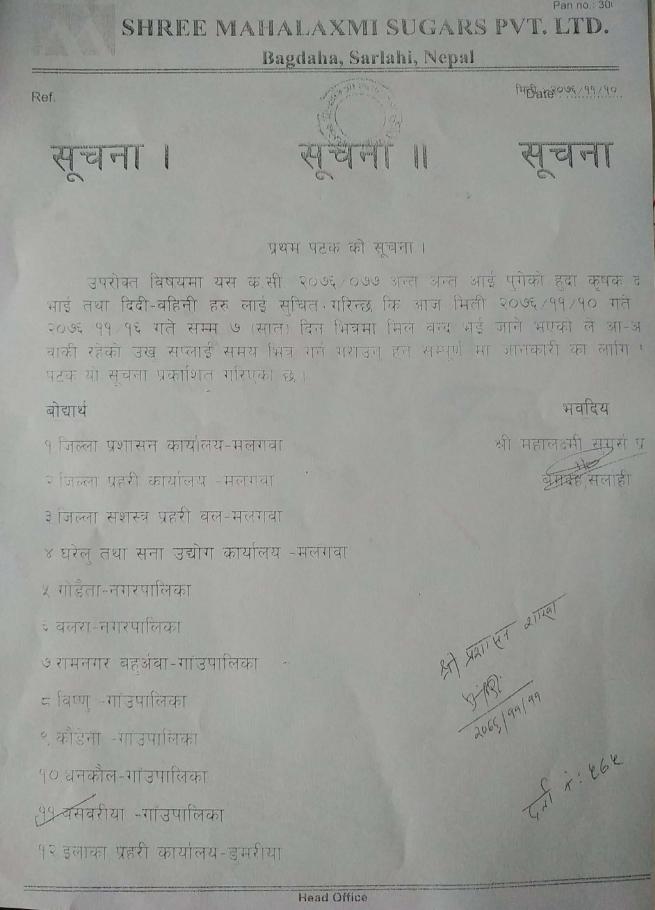 Pan no.: 30
SHREE MAHALAXMI SUGARS PVT. LTD.
Bagdaha, Sarlahi, Nepal
Ref.
मिती Date २०७६/११/१०
सूचना । सूचना ॥ सूचना
प्रथम पटक को सूचना ।
उपरोक्त बिषयमा यस क.सी २०७६/०७७ अन्त अन्त आई पुगेको हुदा कृषक द
भाई तथा दिदी-वहिनी हरु लाई सुचित गरिन्छ कि आज मिती २०७६/११/१० गते
२०७६ ११/१६ गते सम्म ७ (सात) दिन भित्रमा मिल वन्द भई जाने भएको ले आ-अ
वाकी रहेको उख सप्लाई समय भित्र गर्न गराउनु हुन सम्पूर्ण मा जानकारी का लागि
पटक यो सूचना प्रकाशित गरिएको छ ।
बोद्यार्थ भवदिय
१ जिल्ला प्रशासन कार्यालय-मलगवा श्री महालक्ष्मी सुगर्स प्र
२ जिल्ला प्रहरी कार्यालय -मलगवा सर्लाही
३ जिल्ला सशस्त्र प्रहरी वल-मलगवा
४ घरेलु तथा सना उद्योग कार्यालय -मलगवा
५ गोडैता-नगरपालिका
६ वलरा-नगरपालिका
७ रामनगर बहुअंवा-गांउपालिका
८ विष्णु -गांउपालिका
९ कौडेना -गांउपालिका
१० धनकौल-गांउपालिका
११ बसबरीया -गांउपालिका
१२ इलाका प्रहरी कार्यालय-डुमरीया
श्री प्रशासन शाखा
२०७६/११/११
दर्ता नं: ५६५
Head Office